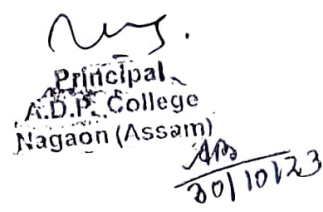 Principal
A.D.P. College
Nagaon (Assam)
30/10/23